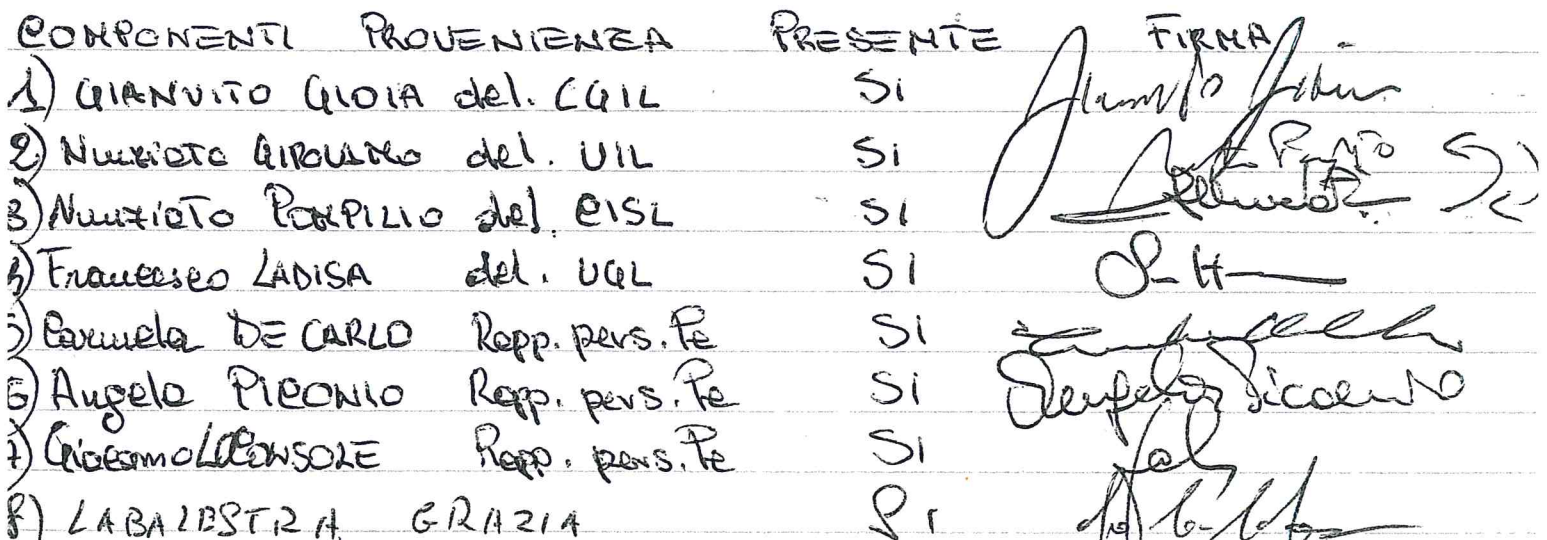 COMPONENTI PROVENIENZA PRESENTE FIRMA
1) GIANVITO GIOIA del. CGIL SI
2) Nunziata GIROLAMO del. UIL SI
3) Nunziato POMPILIO del. CISL SI
4) Francesco LADISA del. UGL SI
5) Carmela DE CARLO Rapp. pers. Te SI
6) Angela PICONIO Rapp. pers. Te SI
7) Giacomo LOCONSOLE Rapp. pers. Te SI
8) LABALESTRA GRAZIA SI